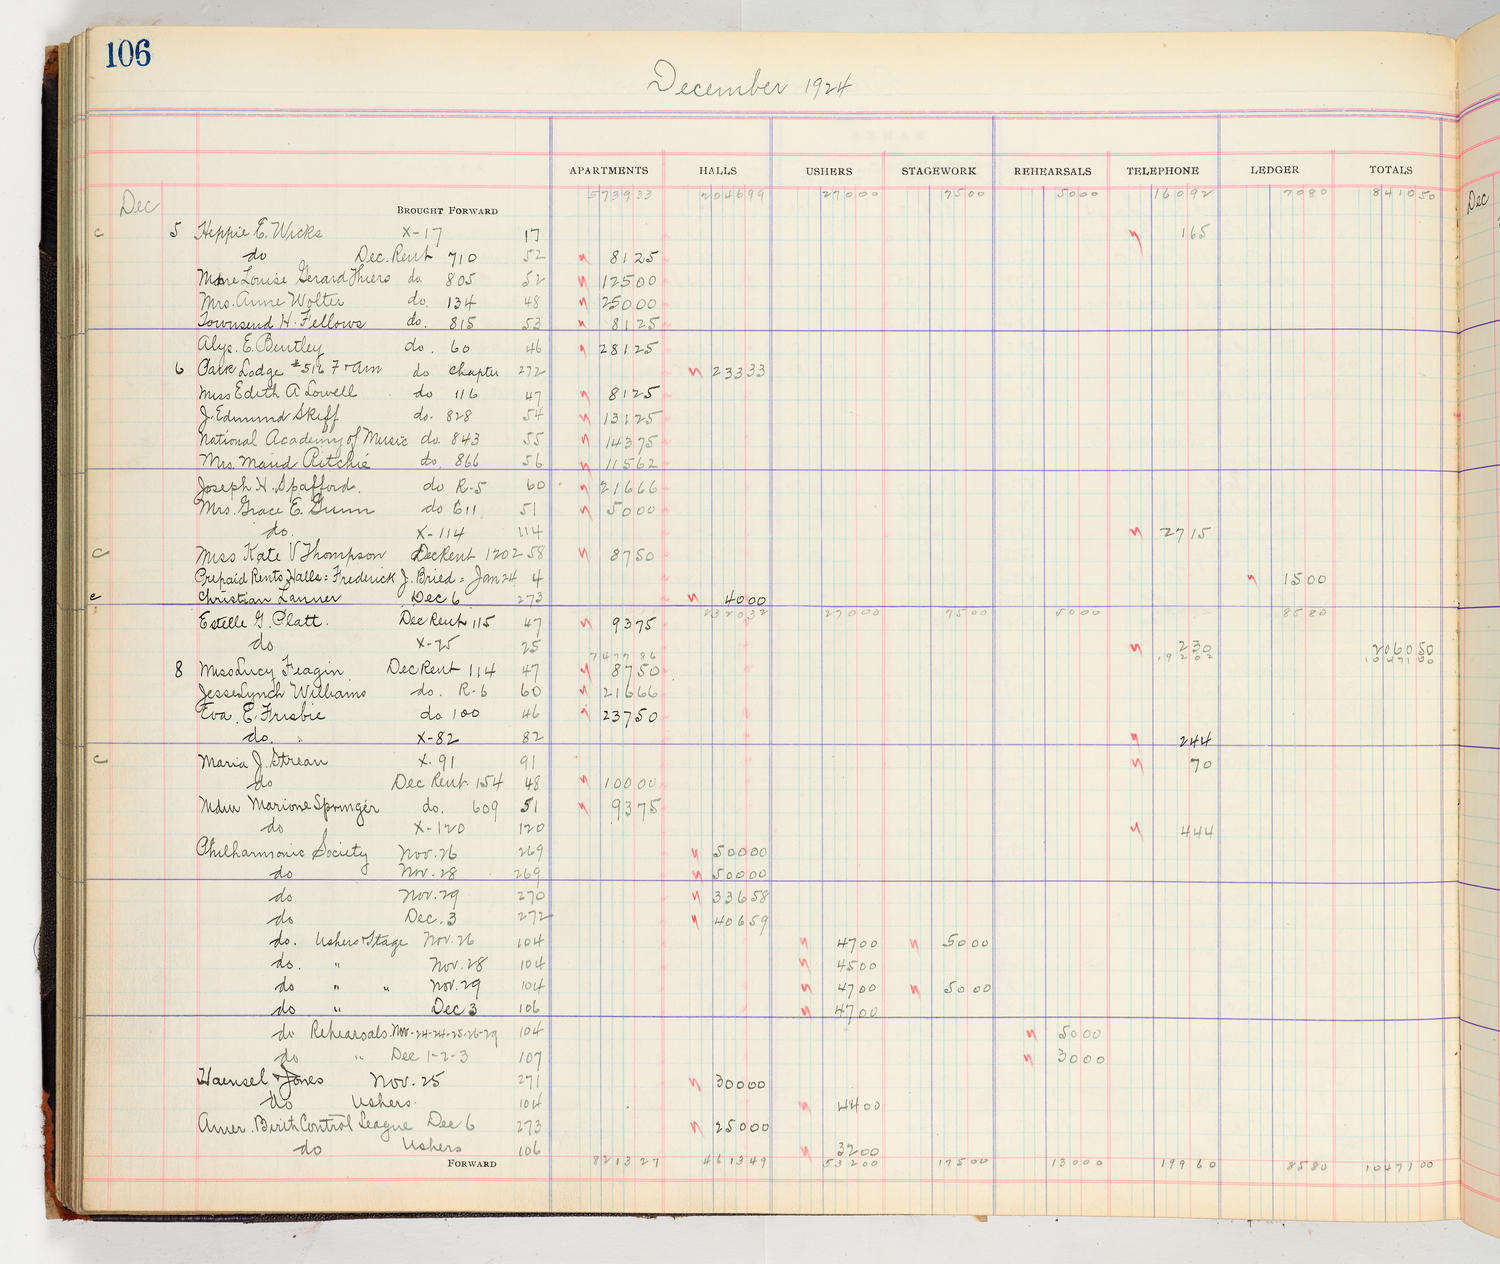 106
December 1924
APARTMENTS HALLS USHERS STAGEWORK REHEARSALS TELEPHONE LEDGER TOTALS
Dec BROUGHT FORWARD 573933 204699 27000 7500 5000 16092 7080 841050
c 5 Heppie E. Wicks X-17 17 165
do Dec. Rent 710 52 8125
Mme Louise Gerard Thiers do 805 52 12500
Mrs. Anne Wolter do. 134 48 25000
Townsend H. Fellows do. 815 53 8125
Alys. E. Bentley do. 60 46 28125
6 Park Lodge #516 F & Am do Chapter 272 23333
Miss Edith A Lowell do 116 47 8125
J. Edmund Skiff do. 828 54 13125
National Academy of Music do. 843 55 14375
Mrs. Maud Ritchie do. 866 56 11562
Joseph H. Spafford. do R-5 60 21666
Mrs. Grace E. Gunn do 611 51 5000
do. X-114 114 2715
c Miss Kate V Thompson Dec Rent 1202 58 8750
Prepaid Rents, Halls = Frederick J. Bried = Jan 24 4 1500
c Christian Lanner Dec 6 273 4000
232032 27000 7500 5000 8580
Estelle G. Platt. Dec Rent 115 47 9375
do X-25 25 230
747786 19202
8 Miss Lucy Feagin Dec Rent 114 47 8750
Jesse Lynch Williams do. R-6 60 21666
Eva. E. Frisbie do 100 46 23750
do. X-82 82 244
c Maria J. Strean X-91 91 70
do Dec Rent. 154 48 10000
Mdm Marione Springer do. 609 51 9375
do X-120 120 444
Philharmonic Society Nov. 26 269 50000
do Nov. 28 269 50000
do Nov. 29 270 33658
do Dec. 3 272 40659
do. Ushers & Stage Nov. 26 104 4700 5000
do. " Nov. 28 104 4500
do " " Nov. 29 104 4700 5000
do " Dec 3 106 4700
do Rehearsals. Nov-24-24-25-26-29 104 5000
do " Dec 1-2-3 107 3000
Haensel & Jones Nov. 25 271 30000
do Ushers. 104 4400
Amer. Birth Control League Dec 6 273 25000
do Ushers 106 3200
FORWARD 821327 461349 53200 17500 13000 19960 8580
Dec